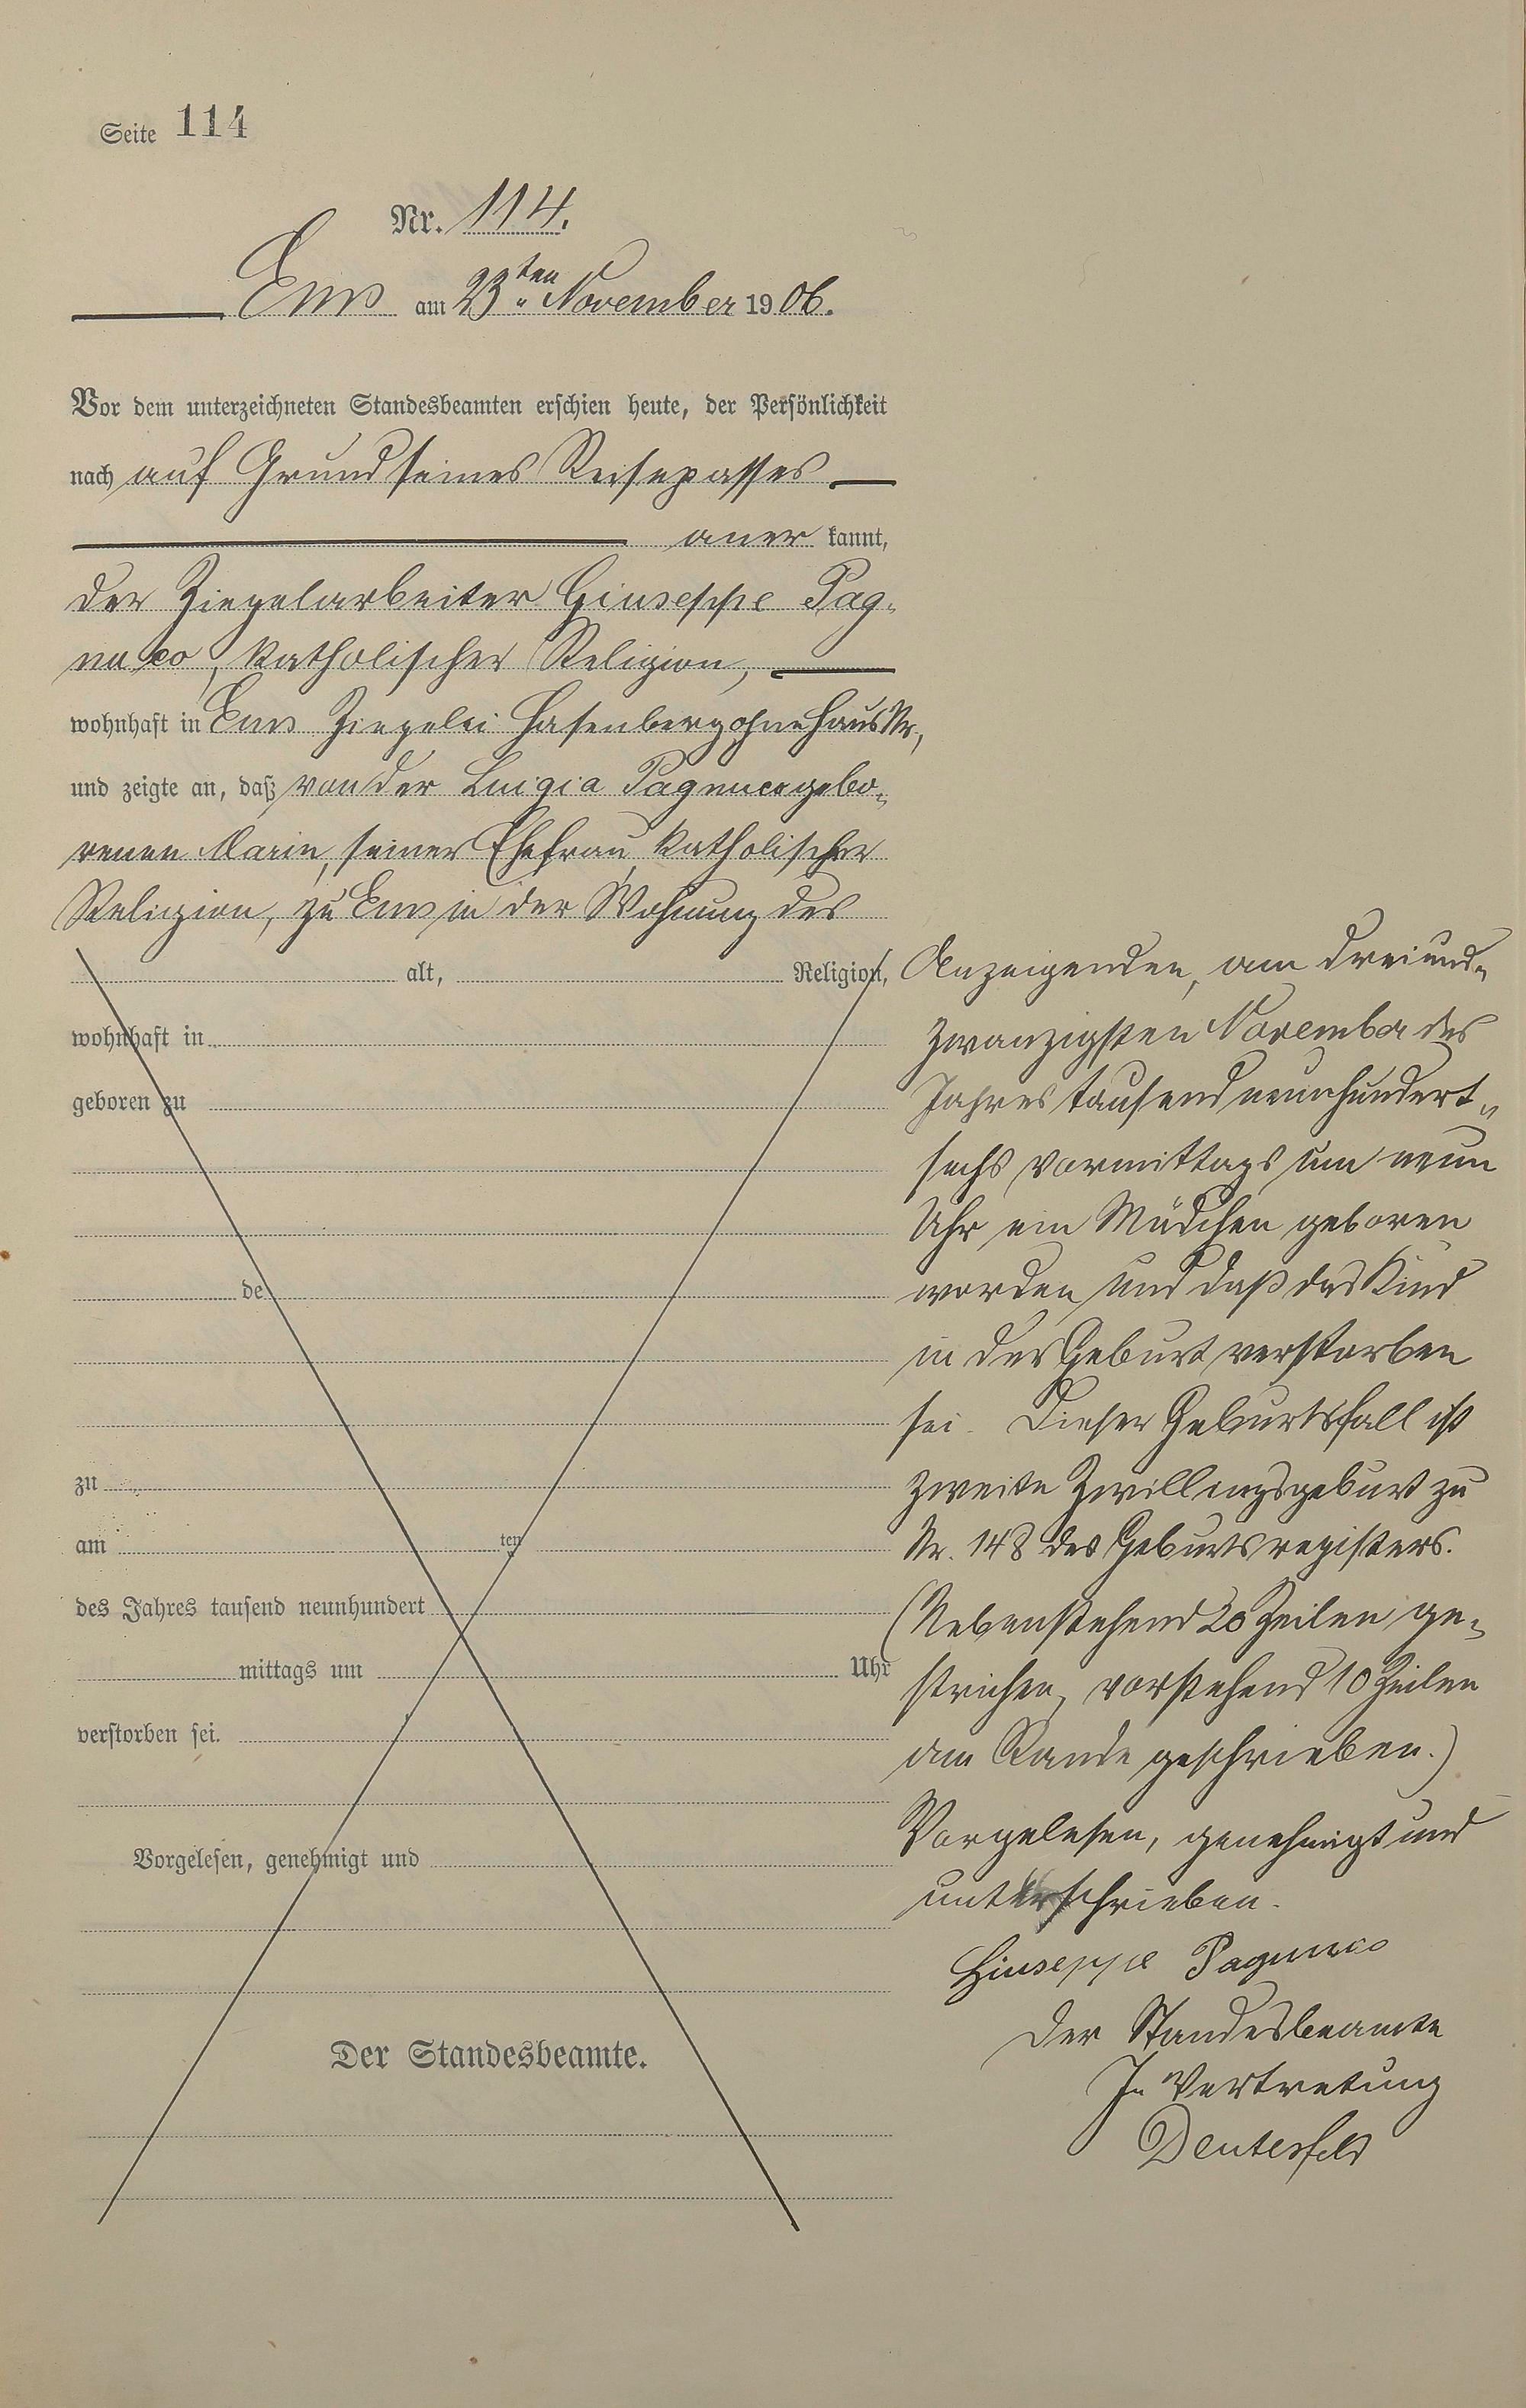 Seite 114
Nr. 114.
Ems am 23ten November 1906.
Vor dem unterzeichneten Standesbeamten erschien heute, der Persönlichkeit
nach auf Grund seines Reisepasses
anerkannt,
der Ziegelarbeiter Giuseppe Pag-
nuco, katholischer Religion,
wohnhaft in Ems Ziegelei Hasenberg ohne Haus Nr,
und zeigte an, daß von der Luigia Pagnuco gebo-
renen Marin, seiner Ehefrau, katholischer
Religion, zu Ems in der Wohnung des
alt, Religion,
wohnhaft in
geboren zu
de
zu
am ten
des Jahres tausend neunhundert
mittags um Uhr
verstorben sei.
Vorgelesen, genehmigt und
Der Standesbeamte.
Anzeigenden, am dreiund-
zwanzigsten November des
Jahres tausend neunhundert-
sechs vormittags um neun
Uhr ein Mädchen geboren
worden und daß das Kind
in der Geburt verstorben
sei. Dieser Geburtsfall ist
zweite Zwillingsgeburt zu
Nr. 148 des Geburtsregisters.
(Nebenstehend 20 Zeilen ge-
strichen, vorstehend 10 Zeilen
am Rande geschrieben.)
Vorgelesen, genehmigt und
unterschrieben.
Giuseppe Pagnuco
Der Standesbeamte
In Vertretung